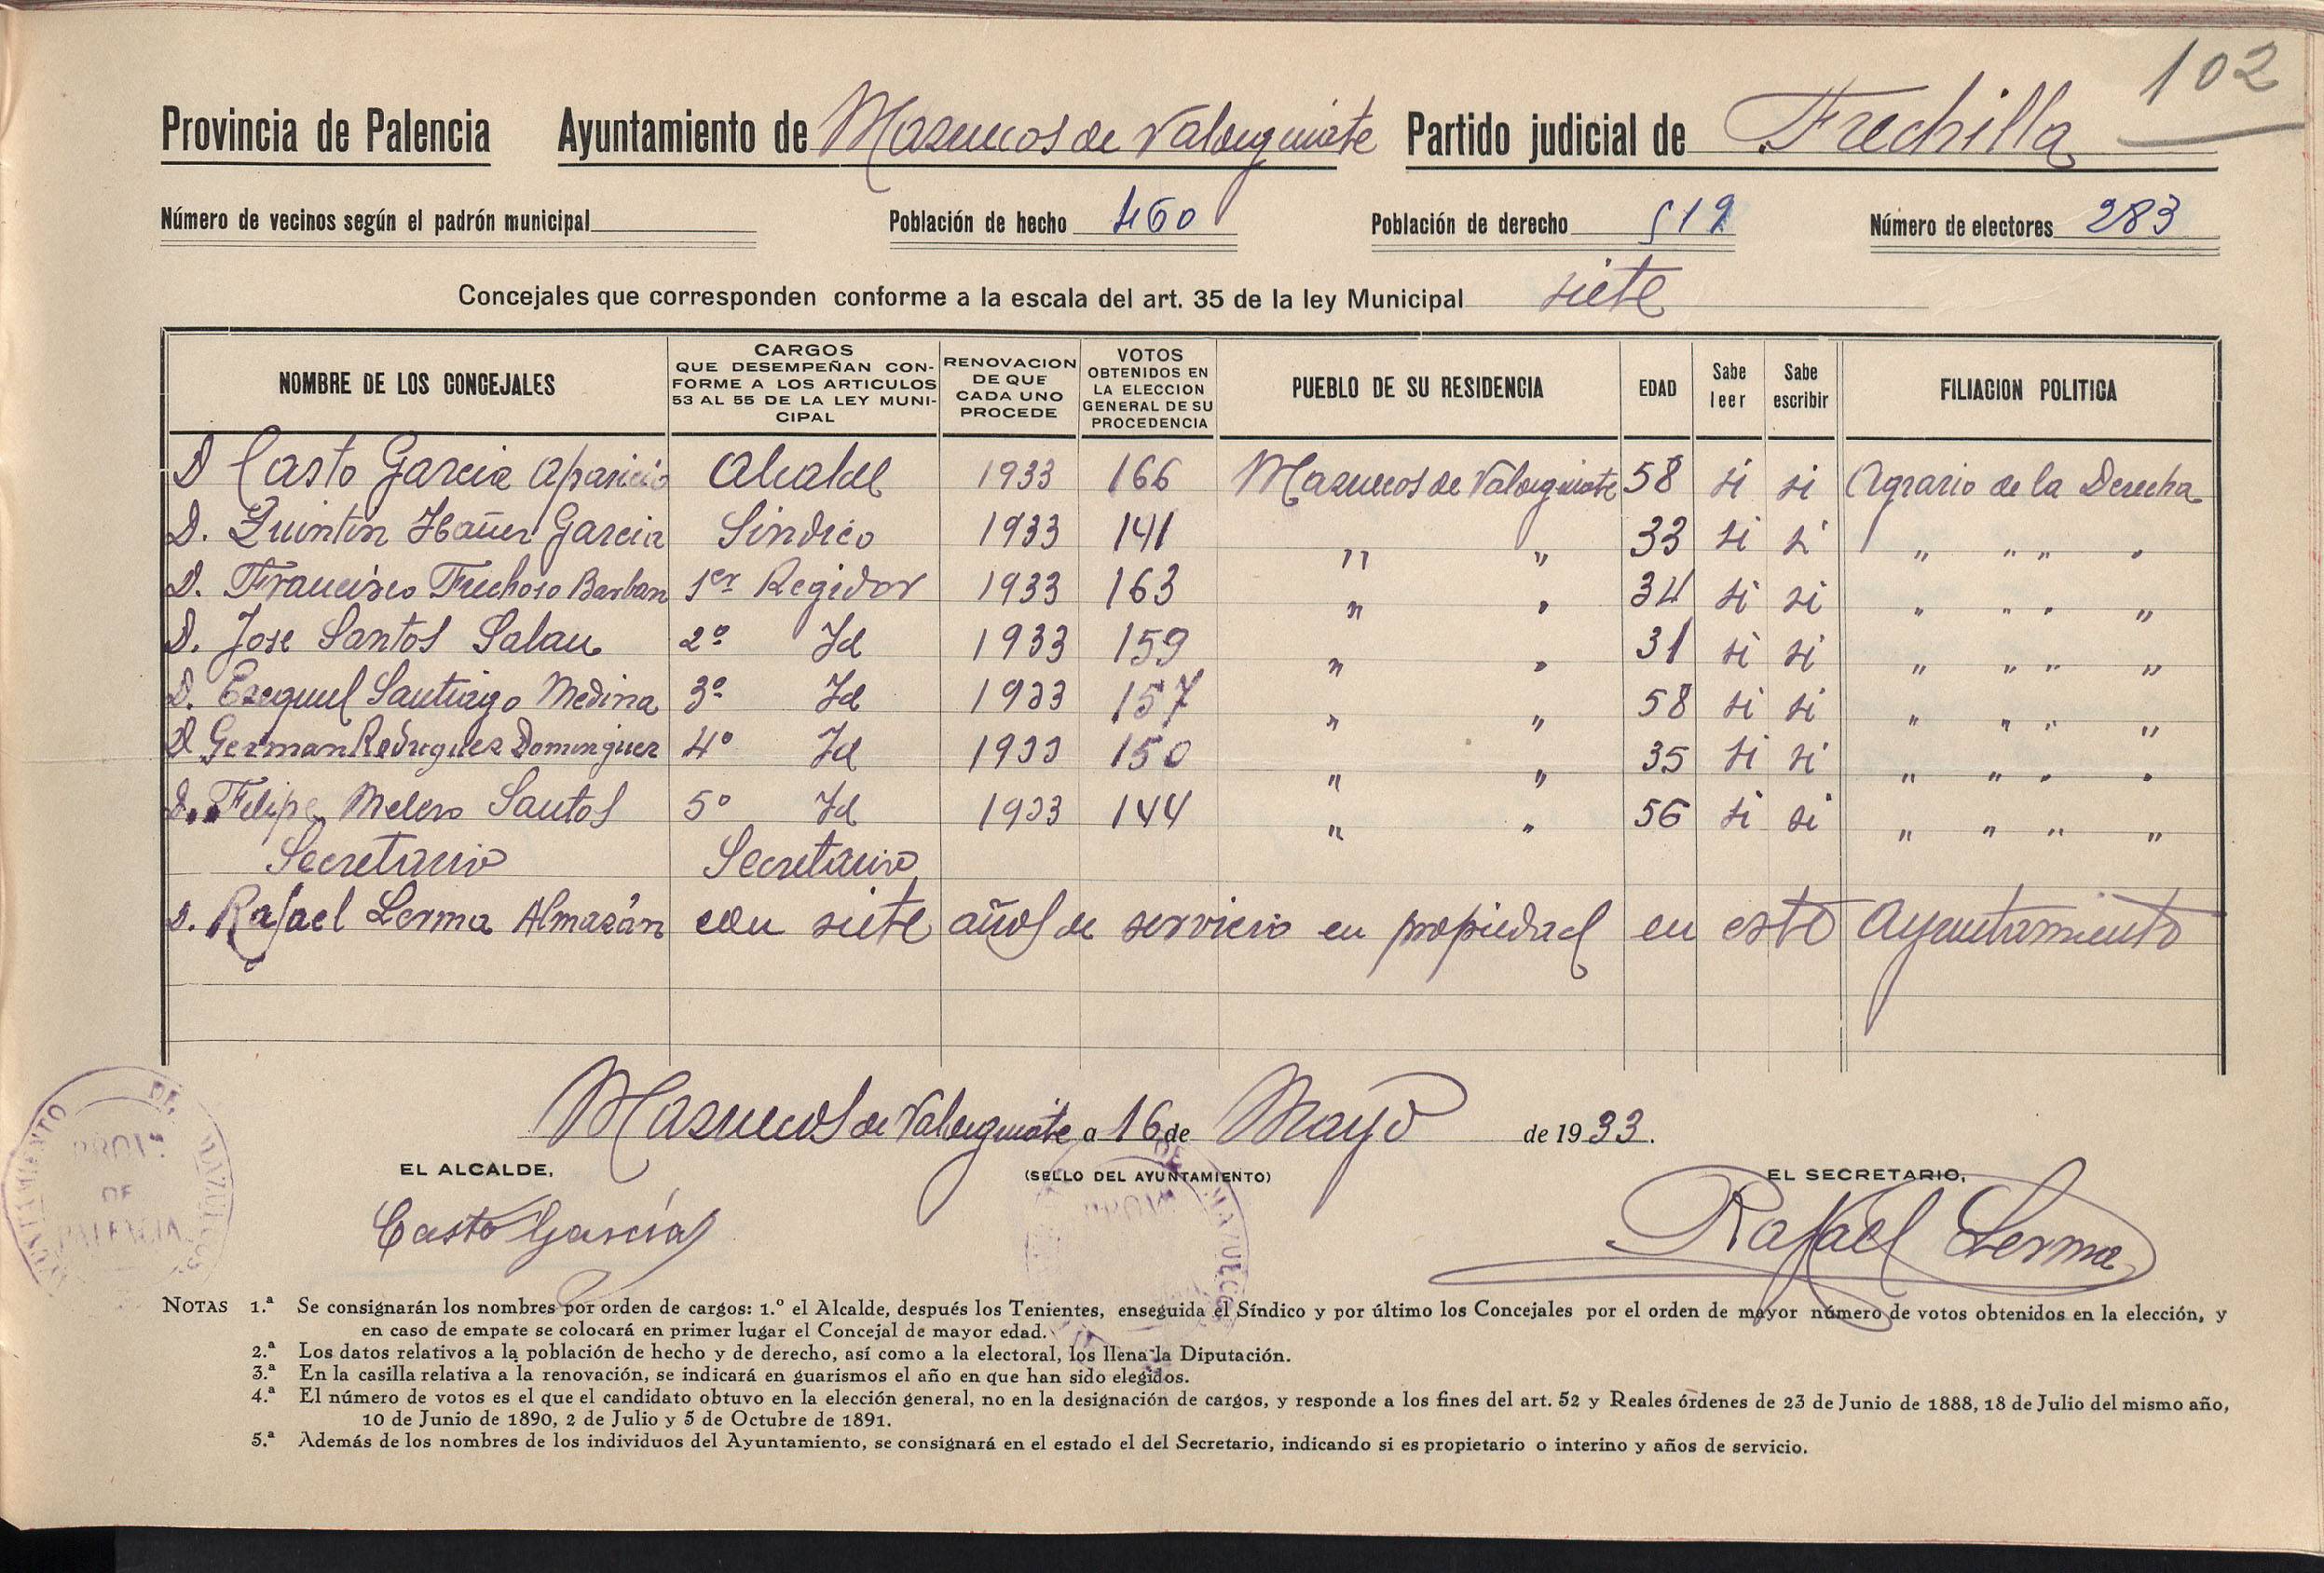 102
Provincia de Palencia Ayuntamiento de Mazuecos de Valdeginate Partido judicial de Frechilla
Número de vecinos según el padrón municipal Población de hecho 460 Población de derecho 519 Número de electores 283
Concejales que corresponden conforme a la escala del art. 35 de la ley Municipal siete
NOMBRE DE LOS CONCEJALES
CARGOS
QUE DESEMPEÑAN CON-
FORME A LOS ARTICULOS
53 AL 55 DE LA LEY MUNI-
CIPAL
RENOVACION
DE QUE
CADA UNO
PROCEDE
VOTOS
OBTENIDOS EN
LA ELECCION
GENERAL DE SU
PROCEDENCIA
PUEBLO DE SU RESIDENCIA
EDAD
Sabe
leer
Sabe
escribir
FILIACION POLITICA
D Casto Garcia Aparicio Alcalde 1933 166 Mazuecos de Valdeginate 58 si si Agrario de la Derecha
D. Quintin Ibañez Garcia Sindico 1933 141 " " 33 si si " " " "
D. Francisco Fruchoso Barban 1er Regidor 1933 163 " " 34 si si " " " "
D. Jose Santos Salan 2º Id 1933 159 " " 31 si si " " " "
D. Ezequiel Santiago Medina 3º Id 1933 157 " " 58 si si " " " "
D German Rodriguez Dominguez 4º Id 1933 150 " " 35 si si " " " "
D. Felipe Melero Santos 5º Id 1933 144 " " 56 si si " " " "
Secretario Secretario
D. Rafael Lerma Almazán con siete años de servicio en propiedad en este Ayuntamiento
Mazuecos de Valdeginate a 16 de Mayo de 1933.
EL ALCALDE, (SELLO DEL AYUNTAMIENTO) EL SECRETARIO,
Casto García Rafael Lerma
AYUNTAMIENTO DE MAZUECOS
PROVª
DE
PALENCIA
NOTAS 1.ª Se consignarán los nombres por orden de cargos: 1.º el Alcalde, después los Tenientes, enseguida el Síndico y por último los Concejales por el orden de mayor número de votos obtenidos en la elección, y
en caso de empate se colocará en primer lugar el Concejal de mayor edad.
2.ª Los datos relativos a la población de hecho y de derecho, así como a la electoral, los llena la Diputación.
3.ª En la casilla relativa a la renovación, se indicará en guarismos el año en que han sido elegidos.
4.ª El número de votos es el que el candidato obtuvo en la elección general, no en la designación de cargos, y responde a los fines del art. 52 y Reales órdenes de 23 de Junio de 1888, 18 de Julio del mismo año,
10 de Junio de 1890, 2 de Julio y 5 de Octubre de 1891.
5.ª Además de los nombres de los individuos del Ayuntamiento, se consignará en el estado el del Secretario, indicando si es propietario o interino y años de servicio.